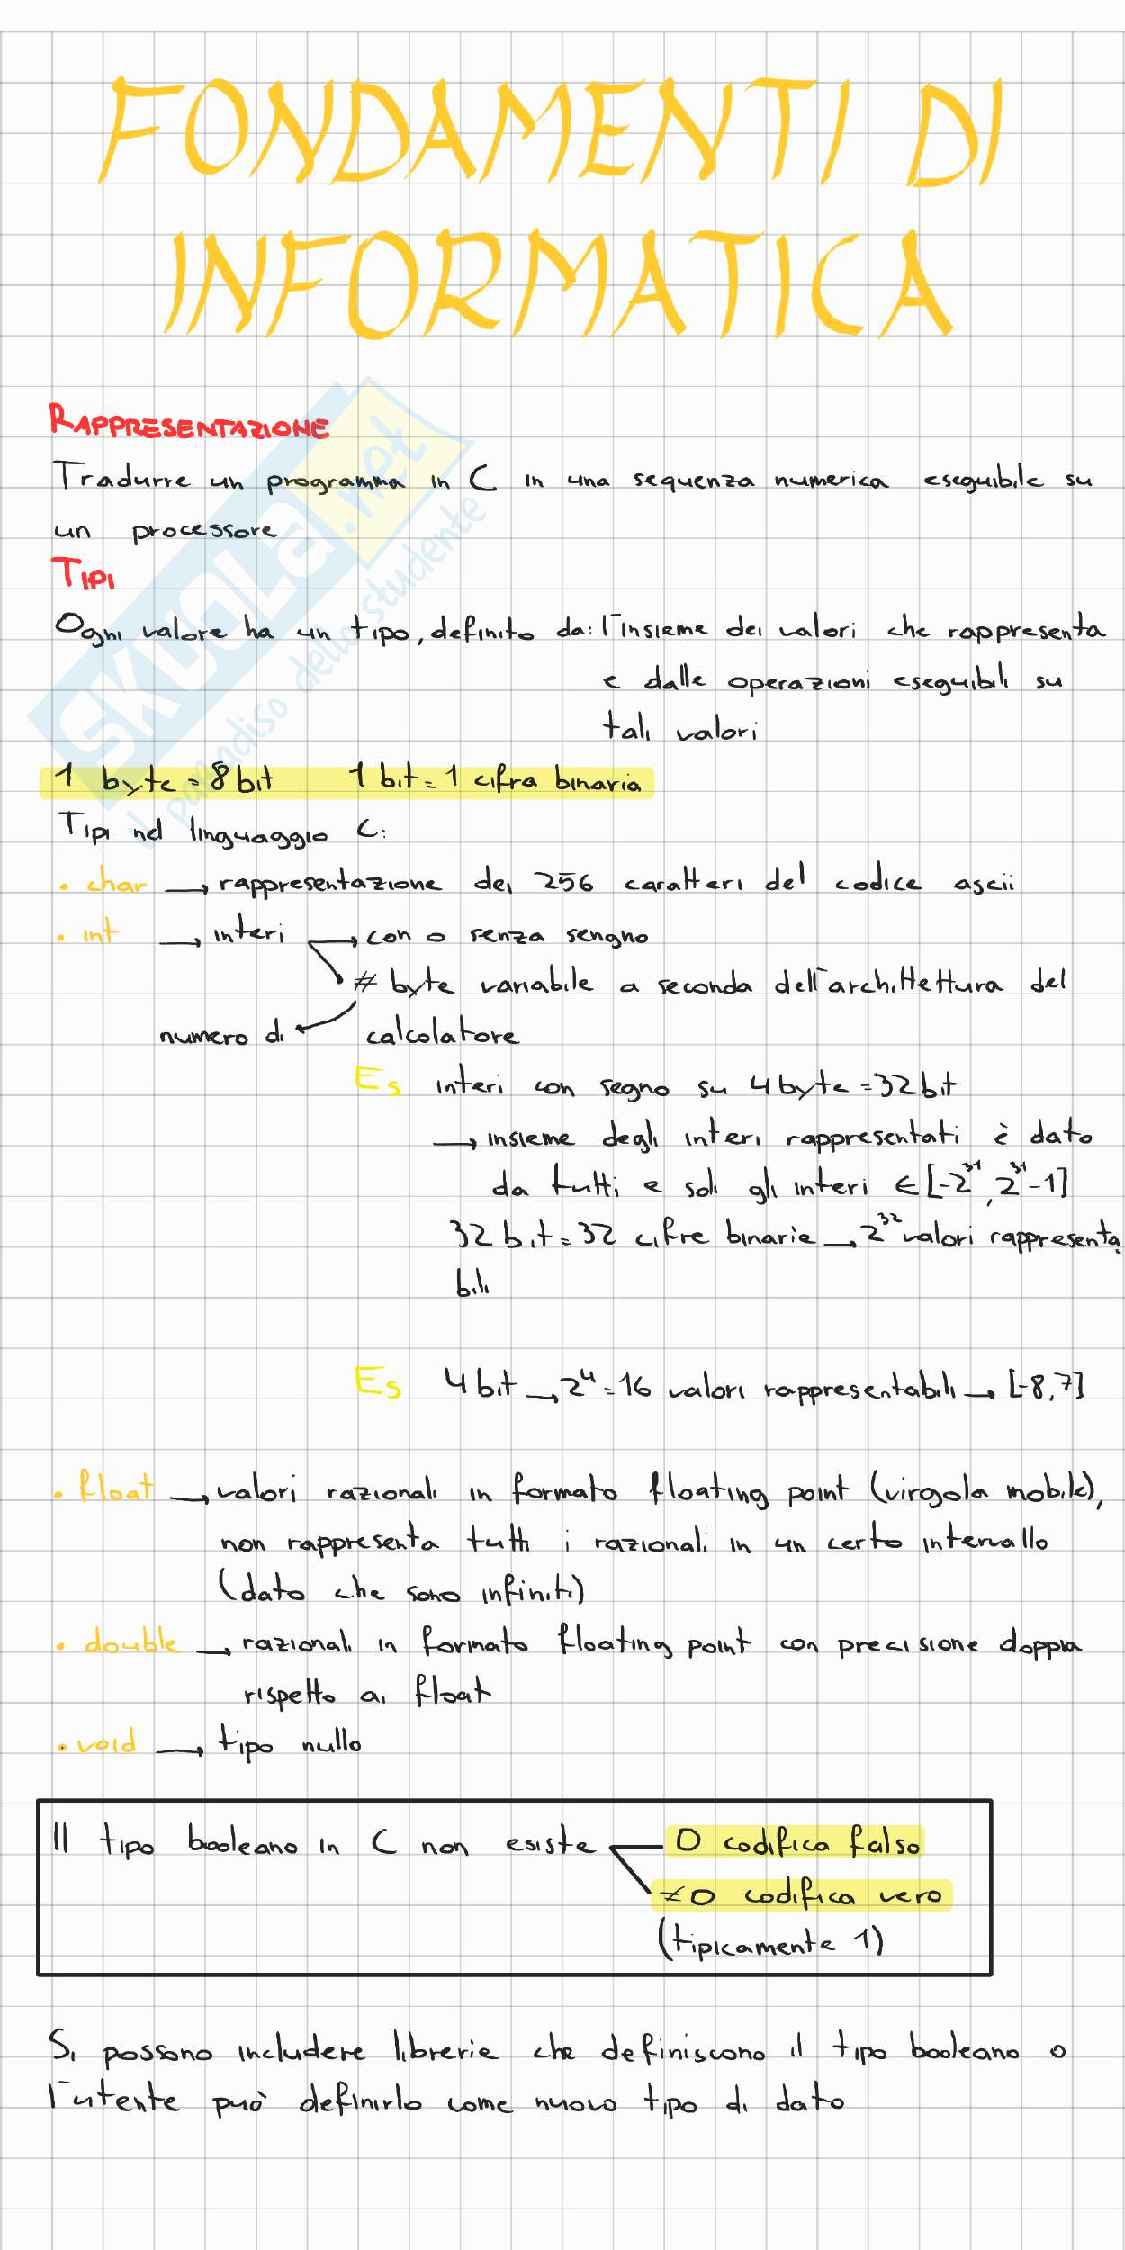 FONDAMENTI DI
INFORMATICA
RAPPRESENTAZIONE
Tradurre un programma in C in una sequenza numerica eseguibile su
un processore
TIPI
Ogni valore ha un tipo, definito da: l'insieme dei valori che rappresenta
e dalle operazioni eseguibili su
tali valori
1 byte = 8 bit 1 bit = 1 cifra binaria
Tipi nel linguaggio C:
• char → rappresentazione dei 256 caratteri del codice ascii
• int → interi → con o senza sengno
# byte variabile a seconda dell'archittettura del
numero di calcolatore
Es interi con segno su 4 byte = 32 bit
→ insieme degli interi rappresentati è dato
da tutti e soli gli interi ∈ [-2³¹, 2³¹-1]
32 bit = 32 cifre binarie → 2³² valori rappresenta
bili
Es 4 bit → 2⁴ = 16 valori rappresentabili → [-8, 7]
• float → valori razionali in formato floating point (virgola mobile),
non rappresenta tutti i razionali in un certo intervallo
(dato che sono infiniti)
• double → razionali in formato floating point con precisione doppia
rispetto ai float
• void → tipo nullo
Il tipo booleano in C non esiste 0 codifica falso
≠0 codifica vero
(tipicamente 1)
Si possono includere librerie che definiscono il tipo booleano o
l'utente può definirlo come nuovo tipo di dato
SKUOLA.net
il paradiso dello studente